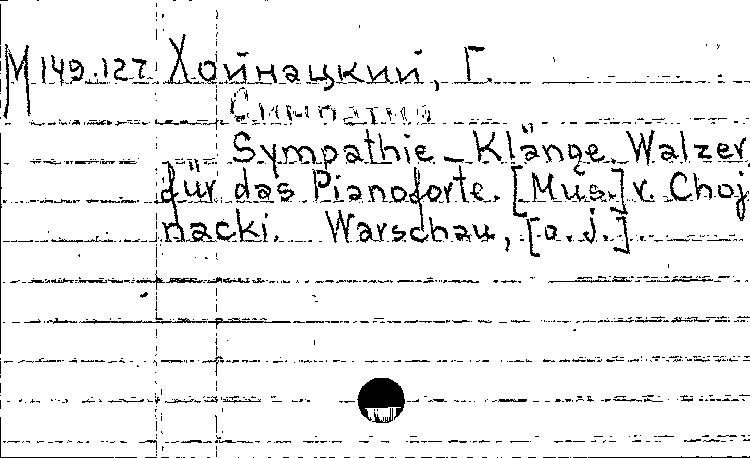 М 149.127 Хойнацкий, Г.
Симпатия
Sympathie-Klänge. Walzer
für das Pianoforte. [Mus.] v. Choj
nacki. Warschau, [o. J.].